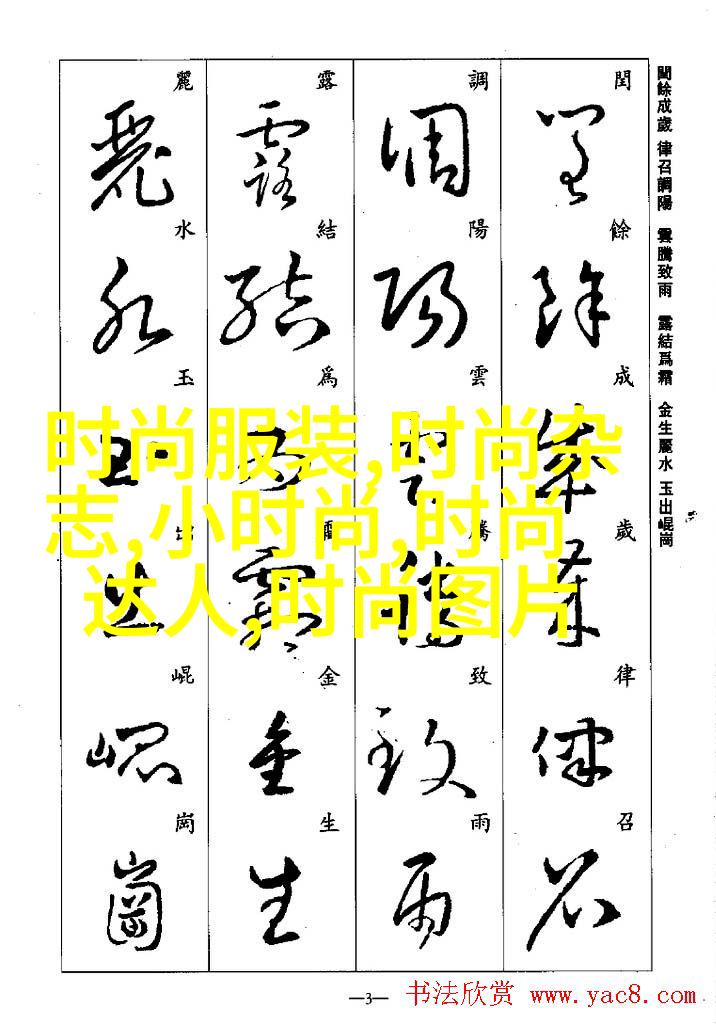 閏餘成歲 律召調陽 雲騰致雨 露結爲霜 金生麗水 玉出崐崗
閏
餘
成
歲
律
召
調
陽
雲
騰
致
雨
露
結
爲
霜
金
生
麗
水
玉
出
崐
崗
时尚服装,时尚杂
志,小时尚,时尚
达人,时尚图片
—3—
书法欣赏 www.yac8.com